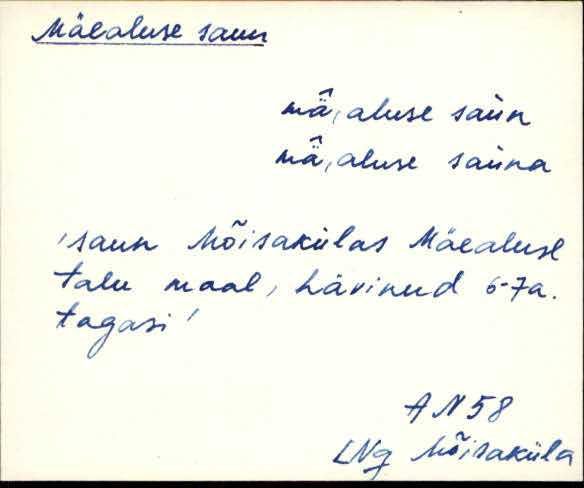 Mäealuse saun
mä̂, aluse saun
mä̂, aluse sauna
'saun Mõisakülas Mäealuse
talu maal, hävinud 6-7a.
tagasi'
AN58
LNg Mõisaküla